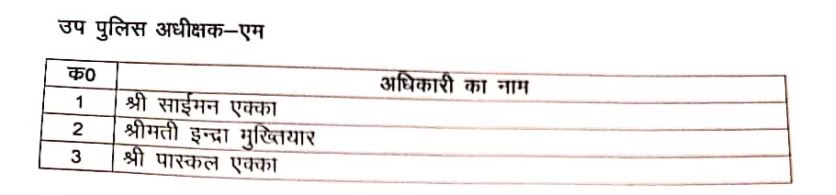 उप पुलिस अधीक्षक–एम
क0 अधिकारी का नाम
1 श्री साईमन एक्का
2 श्रीमती इन्द्रा मुख्तियार
3 श्री पास्कल एक्का